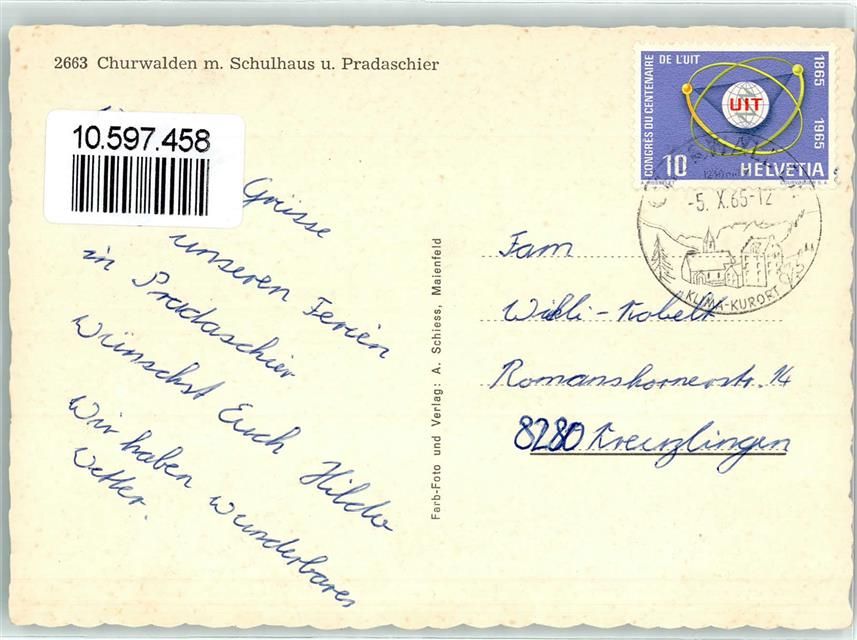 2663 Churwalden m. Schulhaus u. Pradaschier
10.597.458
Grüsse
unseren Ferien
in Pradaschier
Wünschst Euch Hilda
Wir haben wunderbares
Wetter.
Farb-Foto und Verlag: A. Schiess, Maienfeld
CONGRÈS DU CENTENAIRE
DE L'UIT
1865 1965
UIT
10 HELVETIA
COURVOISIER S.A.
1230 m
-5. X.65-12
KLIMA-KURORT
Fam
Wikli-Kobelt
Romanshornerstr. 14
8280 Kreuzlingen